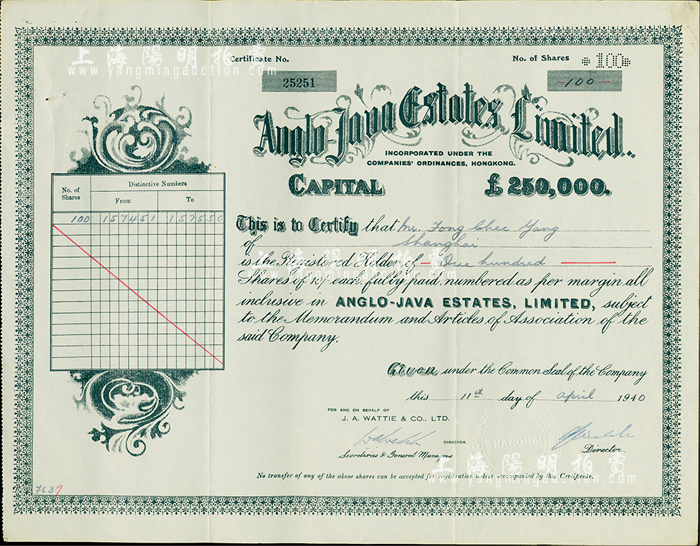 Certificate No.
No. of Shares
*100*
25251
100
Anglo-Java Estates, Limited.
INCORPORATED UNDER THE
COMPANIES' ORDINANCES, HONGKONG.
CAPITAL £250,000.
No. of Shares
Distinctive Numbers
From To
100 157451 157550
This is to Certify that Mr. Fong Chee Yang
of Shanghai
is the Registered Holder of One hundred
Shares of 1/- each fully paid, numbered as per margin all
inclusive in ANGLO-JAVA ESTATES, LIMITED, subject
to the Memorandum and Articles of Association of the
said Company.
Given under the Common Seal of the Company
this 11th day of April 1940
FOR AND ON BEHALF OF
J. A. WATTIE & CO., LTD.
DIRECTOR.
Secretaries & General Managers
Director.
SHANGHAI
No transfer of any of the above shares can be accepted for registration unless accompanied by this Certificate.
7637
上海陽明拍賣
www.yangmingauction.com
上海陽明拍賣
www.yangmingauction.com